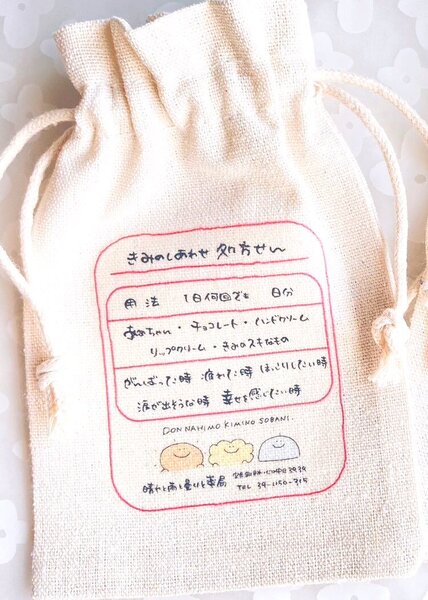 きみのしあわせ 処方せん
用法 1日何回でも 日分
あめちゃん・チョコレート・ハンドクリーム
リップクリーム・きみのスキなもの
がんばった時 疲れた時 ほっこりしたい時
涙が出そうな時 幸せを感じたい時
DONNAHIMO KIMINO SOBANI.
晴れと雨と曇りと薬局
TEL 39-1150-315